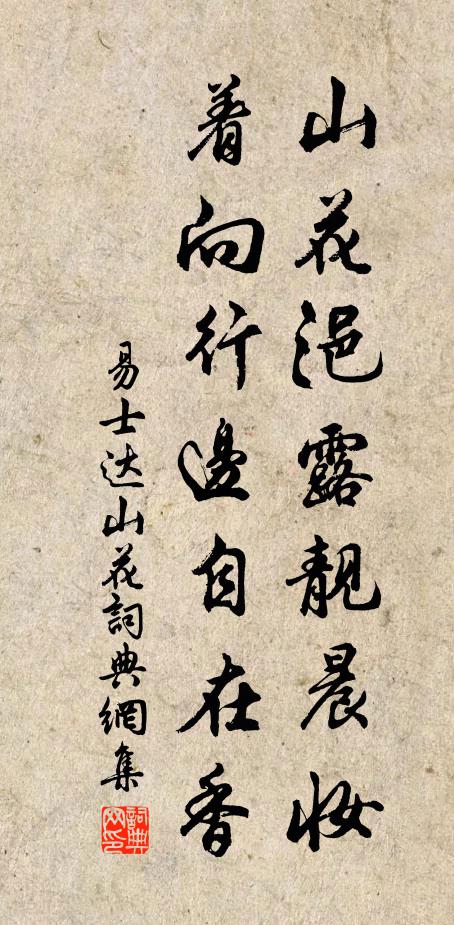 山花浥露靚晨妝
着向行邊自在香
易士达山花詞典網集
詞典网印